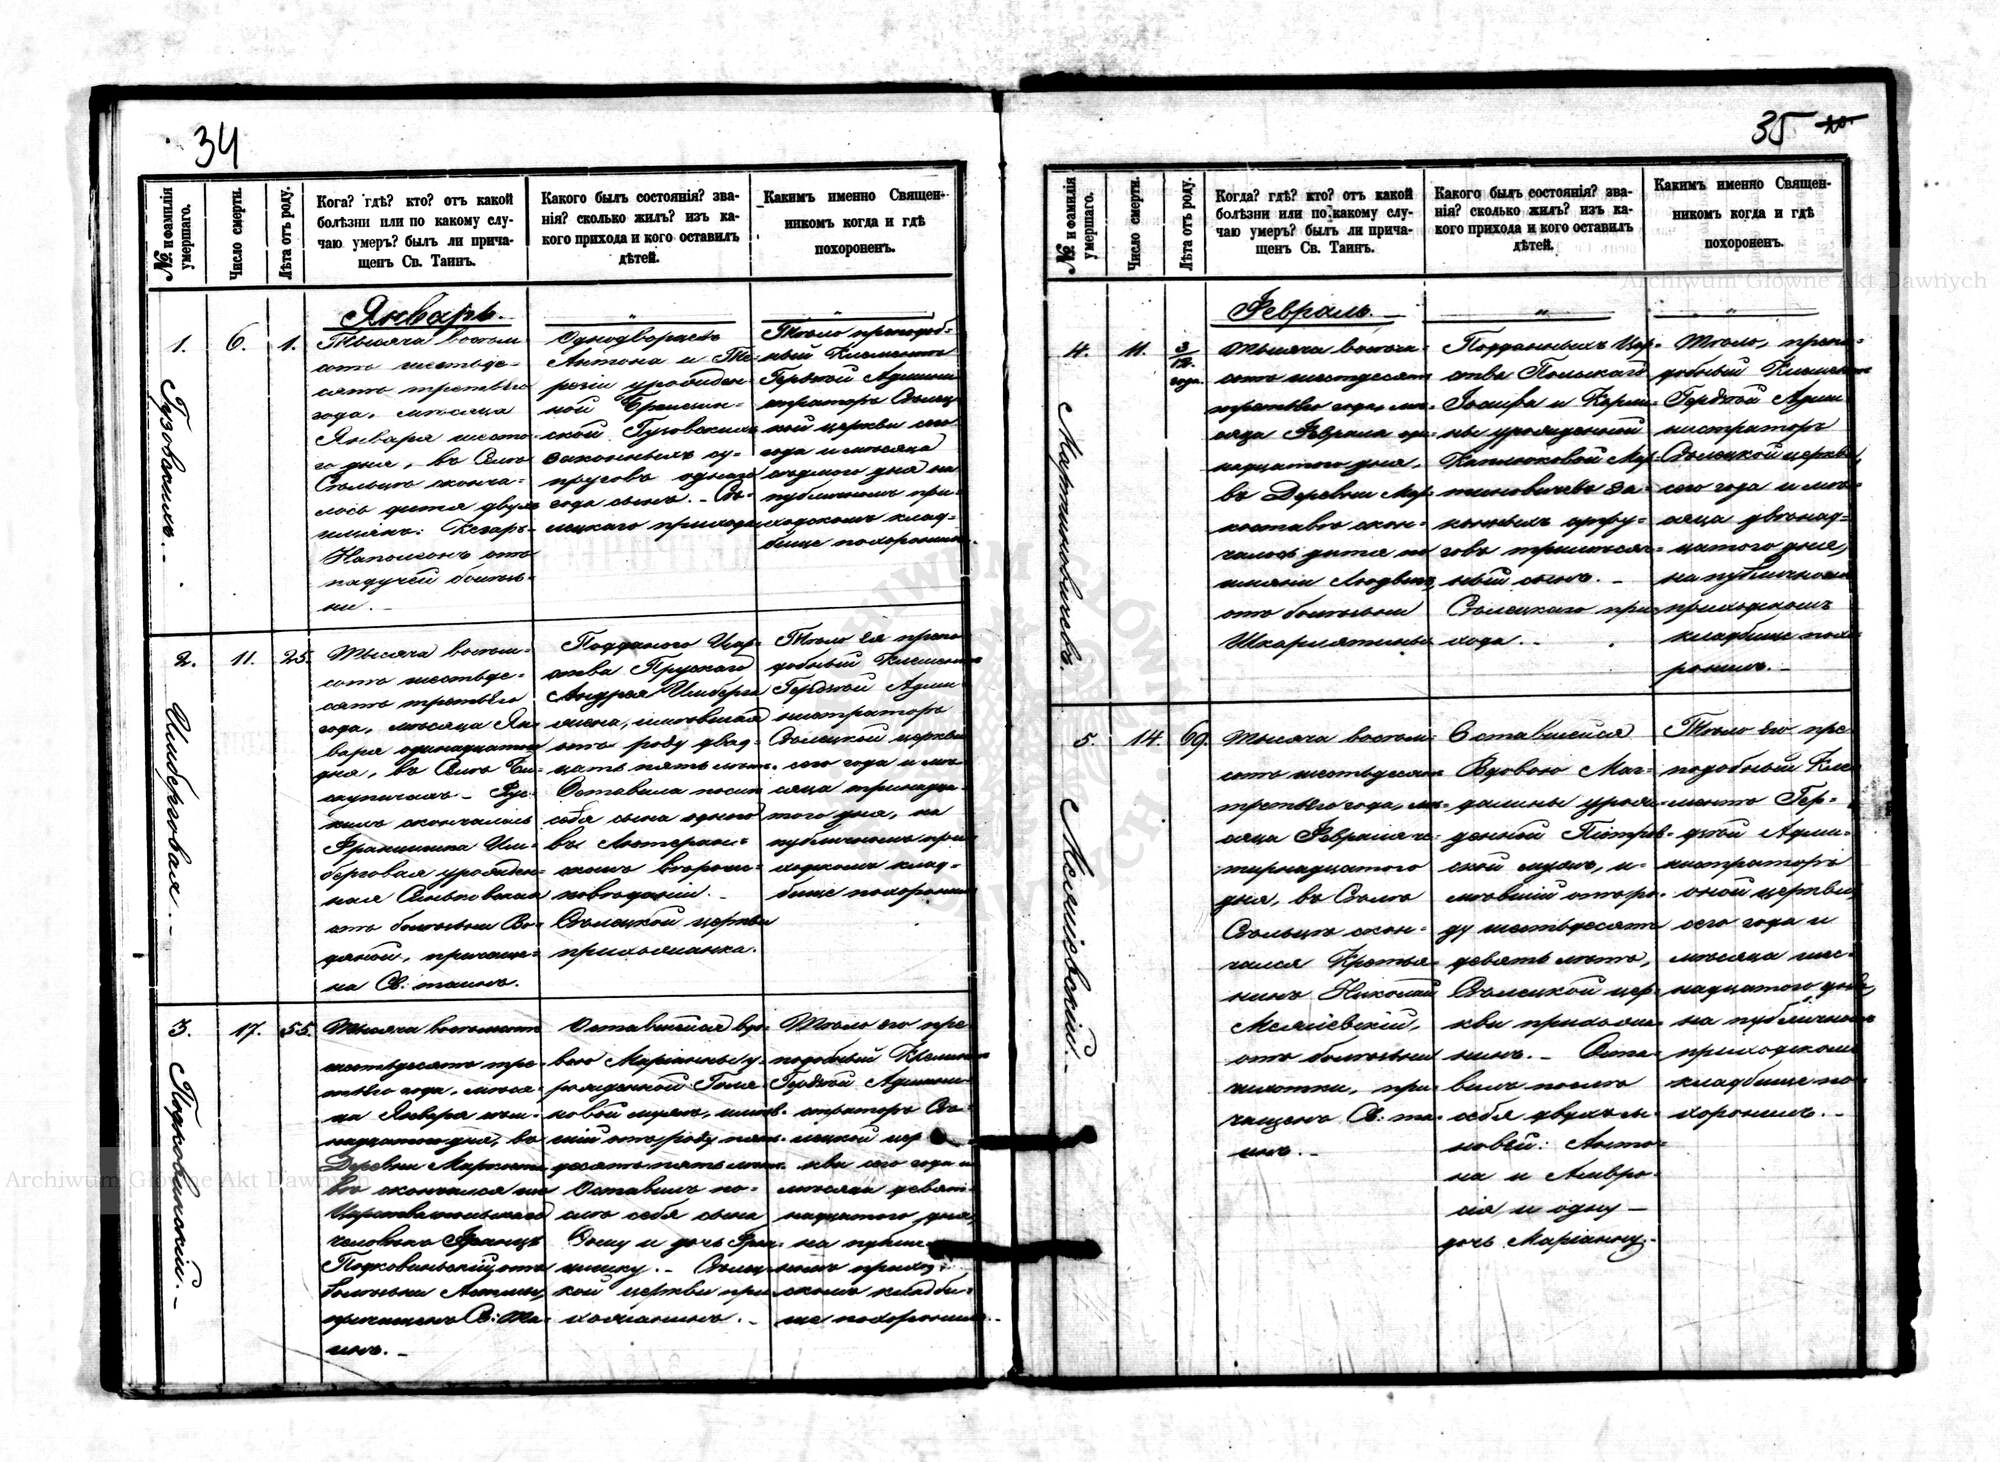 34
№ и фамилія умершаго.
Число смерти.
Лѣта отъ роду.
Кога? гдѣ? кто? отъ какой
болѣзни или по какому слу-
чаю умеръ? былъ ли прича-
щенъ Св. Таинъ.
Какого былъ состоянія? зва-
нія? сколько жилъ? изъ ка-
кого прихода и кого оставилъ
дѣтей.
Какимъ именно Священ-
никомъ когда и гдѣ
похороненъ.
Январь.
1.
Гузовскихъ.
6.
1.
Тысяча восем
сотъ шестьде-
сятъ третьяго
года, мѣсяца
Января шесто-
го дня, въ Селѣ
Стольцѣ сконча-
лось дитя двухъ
имянъ: Кезаръ
Наполеонъ отъ
падучей болѣз-
ни.
Однодворцевъ
Антона и Те-
резіи урожден-
ной
ской Гузовскихъ
законныхъ су-
пруговъ одного
года сынъ. –
лецкаго прихода
Тѣло преподоб-
ный Климентъ
Админи-
страторъ
кой церкви сего
года и мѣсяца
седмого дня на
публичномъ при-
ходскомъ клад-
бище похоронилъ.
2.
Цимберговая.
11.
25.
Тысяча восем-
сотъ шестьде-
сятъ третьяго
года, мѣсяца Ян-
варя одинадцатого
дня, въ Селѣ Би-
скупичахъ – Рус-
кихъ скончалась
Францишка Цим-
берговая урожден-
ная
отъ болѣзни Во-
дяной, причаще-
на Св: таинъ.
Подданого Цар-
ства Прускаго
Андрея Цимберга
жена, имѣвшая
отъ роду двад-
цать пять лѣтъ.
Оставила после
себя сына одного
въ Лютеран-
скомъ вѣроис-
повѣданіи. –
церкви
прихожанка.
Тѣло ея препо-
добный Климентъ
Адми-
нистраторъ
церкви
сего года и мѣ-
сяца тринадца-
того дня, на
публичномъ при-
ходскомъ клад-
бище похоронилъ
3.
Подковинскій. –
17.
55.
Тысяча восемсотъ
шестьдесятъ тре-
тьяго года, мѣся-
ца Января сем-
надцатого дня, въ
Деревни Маркоста-
вѣ скончался
Царства польскаго
человѣкъ Францъ
отъ
болѣзни
причащенъ Св: Та-
инъ. –
Оставшейся вдо-
вою Маріанны у-
рожденной
новой мужъ, имѣв-
шій отъ роду пять-
десять пять лѣтъ.
Оставилъ по-
слѣ себя сына
и дочь Фран-
цишку. –
кой церкви при-
хожанинъ. –
Тѣло его пре-
подобный Климентъ
Админи-
страторъ
лецкой цер
кви сего года и
мѣсяца девят-
надцатого дня,
на публич
номъ приход-
скомъ кладби-
ще похоронилъ. –
35
№ и фамилія умершаго.
Число смерти.
Лѣта отъ роду.
Когда? гдѣ? кто? отъ какой
болѣзни или по какому слу-
чаю умеръ? былъ ли прича-
щенъ Св. Таинъ.
Какого былъ состоянія? зва-
нія? сколько жилъ? изъ ка-
кого прихода и кого оставилъ
дѣтей.
Какимъ именно Священ-
никомъ когда и гдѣ
похороненъ.
Февраль.
4.
Мартиновичевъ.
11.
3/12
года.
Тысяча восем-
сотъ шестдесятъ
третьяго года, мѣ-
сяца Февраля оди-
надцатого дня,
въ Деревни Мар-
коставѣ скон-
чалось дитя по
имяни Людвигъ,
отъ болѣзни
Шкарлятины
Подданныхъ Цар-
ства Польскаго
Іосифа и
ны урожденной
Каплюковой Мар-
тиновичевъ за-
конныхъ супру-
говъ тримѣсяч-
ный сынъ. –
при-
хода. –
Тѣло, препо-
добный Климентъ
Адми-
нистраторъ
церкви,
сего года и мѣ-
сяца двѣнад-
цатого дня,
на публичномъ
приходскомъ
кладбище похо-
ронилъ. –
5.
14.
69.
Тысяча восем-
сотъ шестьдесятъ
третьяго года, мѣ-
сяца Февраля че-
тырнадцатого
дня, въ Селѣ
Стольцѣ скон-
чался Крестья-
нинъ Николай
отъ болѣзни
чахотки, при-
чащенъ Св: та-
инъ. –
Оставшейся
Вдовою Маг-
далины урож-
денной Петров-
ской мужъ, и-
мѣвшій отъ ро-
ду шестьдесятъ
девять лѣтъ,
цер-
кви прихожа-
нинъ. – Оста-
вилъ послѣ
себя двухъ сы-
новей: Анто-
на и Амвро-
сія и одну –
дочь Маріанну. –
Тѣло его пре-
подобный Кли-
ментъ
Адми-
нистраторъ
оной церкви,
сего года и
мѣсяца шес-
надцатого дня,
на публичномъ
приходскомъ
кладбище по-
хоронилъ. –
Archiwum Główne Akt Dawnych
Archiwum Główne Akt Dawnych